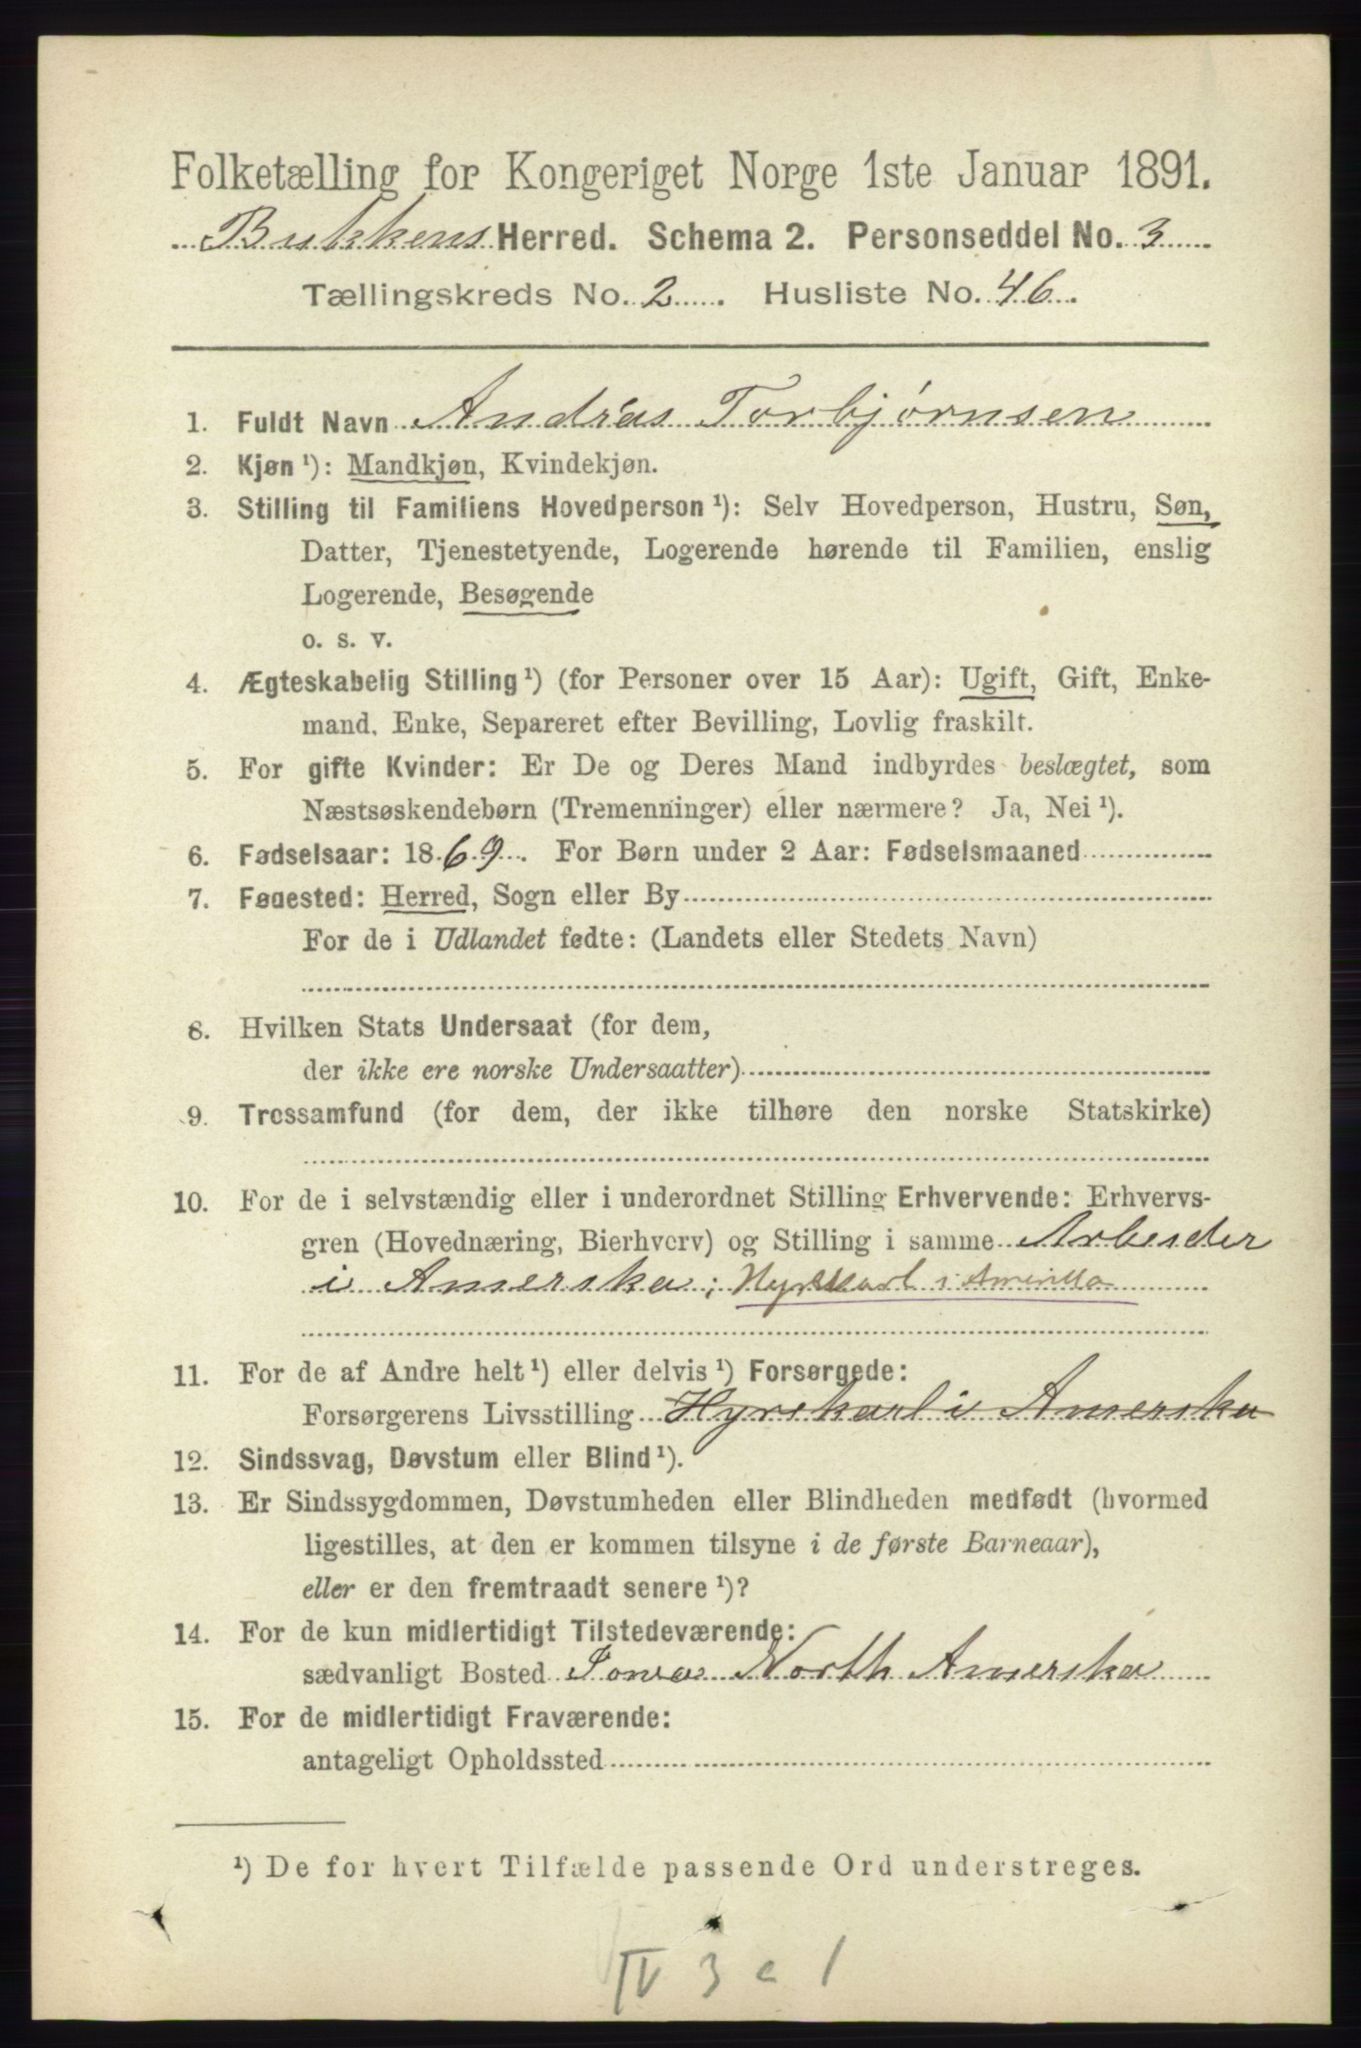 Folketælling for Kongeriget Norge 1ste Januar 1891.
Bukkens Herred. Schema 2. Personseddel No. 3
Tællingskreds No. 2. Husliste No. 46.
1. Fuldt Navn Andreas Torbjørnsen
2. Kjøn ¹): Mandkjøn, Kvindekjøn.
3. Stilling til Familiens Hovedperson ¹): Selv Hovedperson, Hustru, Søn,
Datter, Tjenestetyende, Logerende hørende til Familien, enslig
Logerende, Besøgende
o. s. v.
4. Ægteskabelig Stilling ¹) (for Personer over 15 Aar): Ugift, Gift, Enke-
mand, Enke, Separeret efter Bevilling, Lovlig fraskilt.
5. For gifte Kvinder: Er De og Deres Mand indbyrdes beslægtet, som
Næstsøskendebørn (Tremenninger) eller nærmere? Ja, Nei ¹).
6. Fødselsaar: 1869. For Børn under 2 Aar: Fødselsmaaned
7. Fødested: Herred, Sogn eller By
For de i Udlandet fødte: (Landets eller Stedets Navn)
8. Hvilken Stats Undersaat (for dem,
der ikke ere norske Undersaatter)
9. Trossamfund (for dem, der ikke tilhøre den norske Statskirke)
10. For de i selvstændig eller i underordnet Stilling Erhvervende: Erhvervs-
gren (Hovednæring, Bierhverv) og Stilling i samme Arbeider
i Amerika; Hyrekarl i Amerika
11. For de af Andre helt ¹) eller delvis ¹) Forsørgede:
Forsørgerens Livsstilling Hyrekarl i Amerika
12. Sindssvag, Døvstum eller Blind ¹).
13. Er Sindssygdommen, Døvstumheden eller Blindheden medfødt (hvormed
ligestilles, at den er kommen tilsyne i de første Barneaar),
eller er den fremtraadt senere ¹)?
14. For de kun midlertidigt Tilstedeværende:
sædvanligt Bosted Iowa North Amerika
15. For de midlertidigt Fraværende:
antageligt Opholdssted
¹) De for hvert Tilfælde passende Ord understreges.
IV 3 c 1